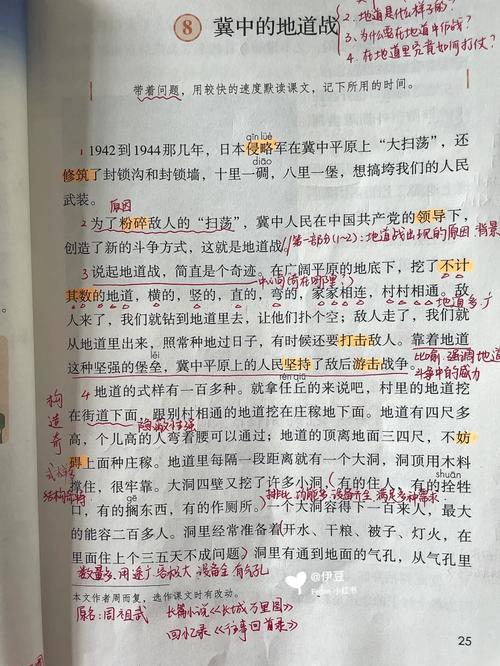 2.地道是什么样子的?
3.为什么要在地道里作战?
4.在地道里究竟如何打仗?
8 冀中的地道战
带着问题,用较快的速度默读课文,记下所用的时间。
qīn lüè
1 1942到1944那几年,日本侵略军在冀中平原上“大扫荡”,还
diāo
修筑了封锁沟和封锁墙,十里一碉,八里一堡,想搞垮我们的人民
武装。
原因
2 为了粉碎敌人的“扫荡”,冀中人民在中国共产党的领导下,
创造了新的斗争方式,这就是地道战。
第一部分(1~2):地道战出现的原因 背景
3 说起地道战,简直是个奇迹。在广阔平原的地底下,挖了不计
其数的地道,横的,竖的,直的,弯的,家家相连,村村相通。敌
地道多、广
人来了,我们就钻到地道里去,让他们扑个空;敌人走了,我们就
从地道里出来,照常种地过日子,有时候还要打击敌人。靠着地道
lěi
这种坚强的堡垒,冀中平原上的人民坚持了敌后游击战争。
比喻 强调地道
斗争中的威力
rén qiū
4 地道的式样有一百多种。就拿任丘的来说吧,村里的地道挖
在街道下面,跟别村相通的地道挖在庄稼地下面。地道有四尺多
隐蔽性强
构造奇
高,个儿高的人弯着腰可以通过;地道的顶离地面三四尺,不妨
碍上面种庄稼。地道里每隔一段距离就有一个大洞,洞顶用木料
式样多
shuān
撑住,很牢靠。大洞四壁又挖了许多小洞,有的住人,有的拴牲
结构奇特
gē
排比 功能多 设备齐全 满足多种需求
口,有的搁东西,有的作厕所。一个大洞容得下一百来人,最大
的能容二百多人。洞里经常准备着开水、干粮、被子、灯火,在
里面住上个三五天不成问题。洞里有通到地面的气孔,从气孔里
数量多 用途广 容积大 设备全 有气孔
本文作者周而复,选作课文时有改动。
@伊豆
小红书
原名:周祖武 长篇小说《长城万里图》
回忆录《往事回首录》
25